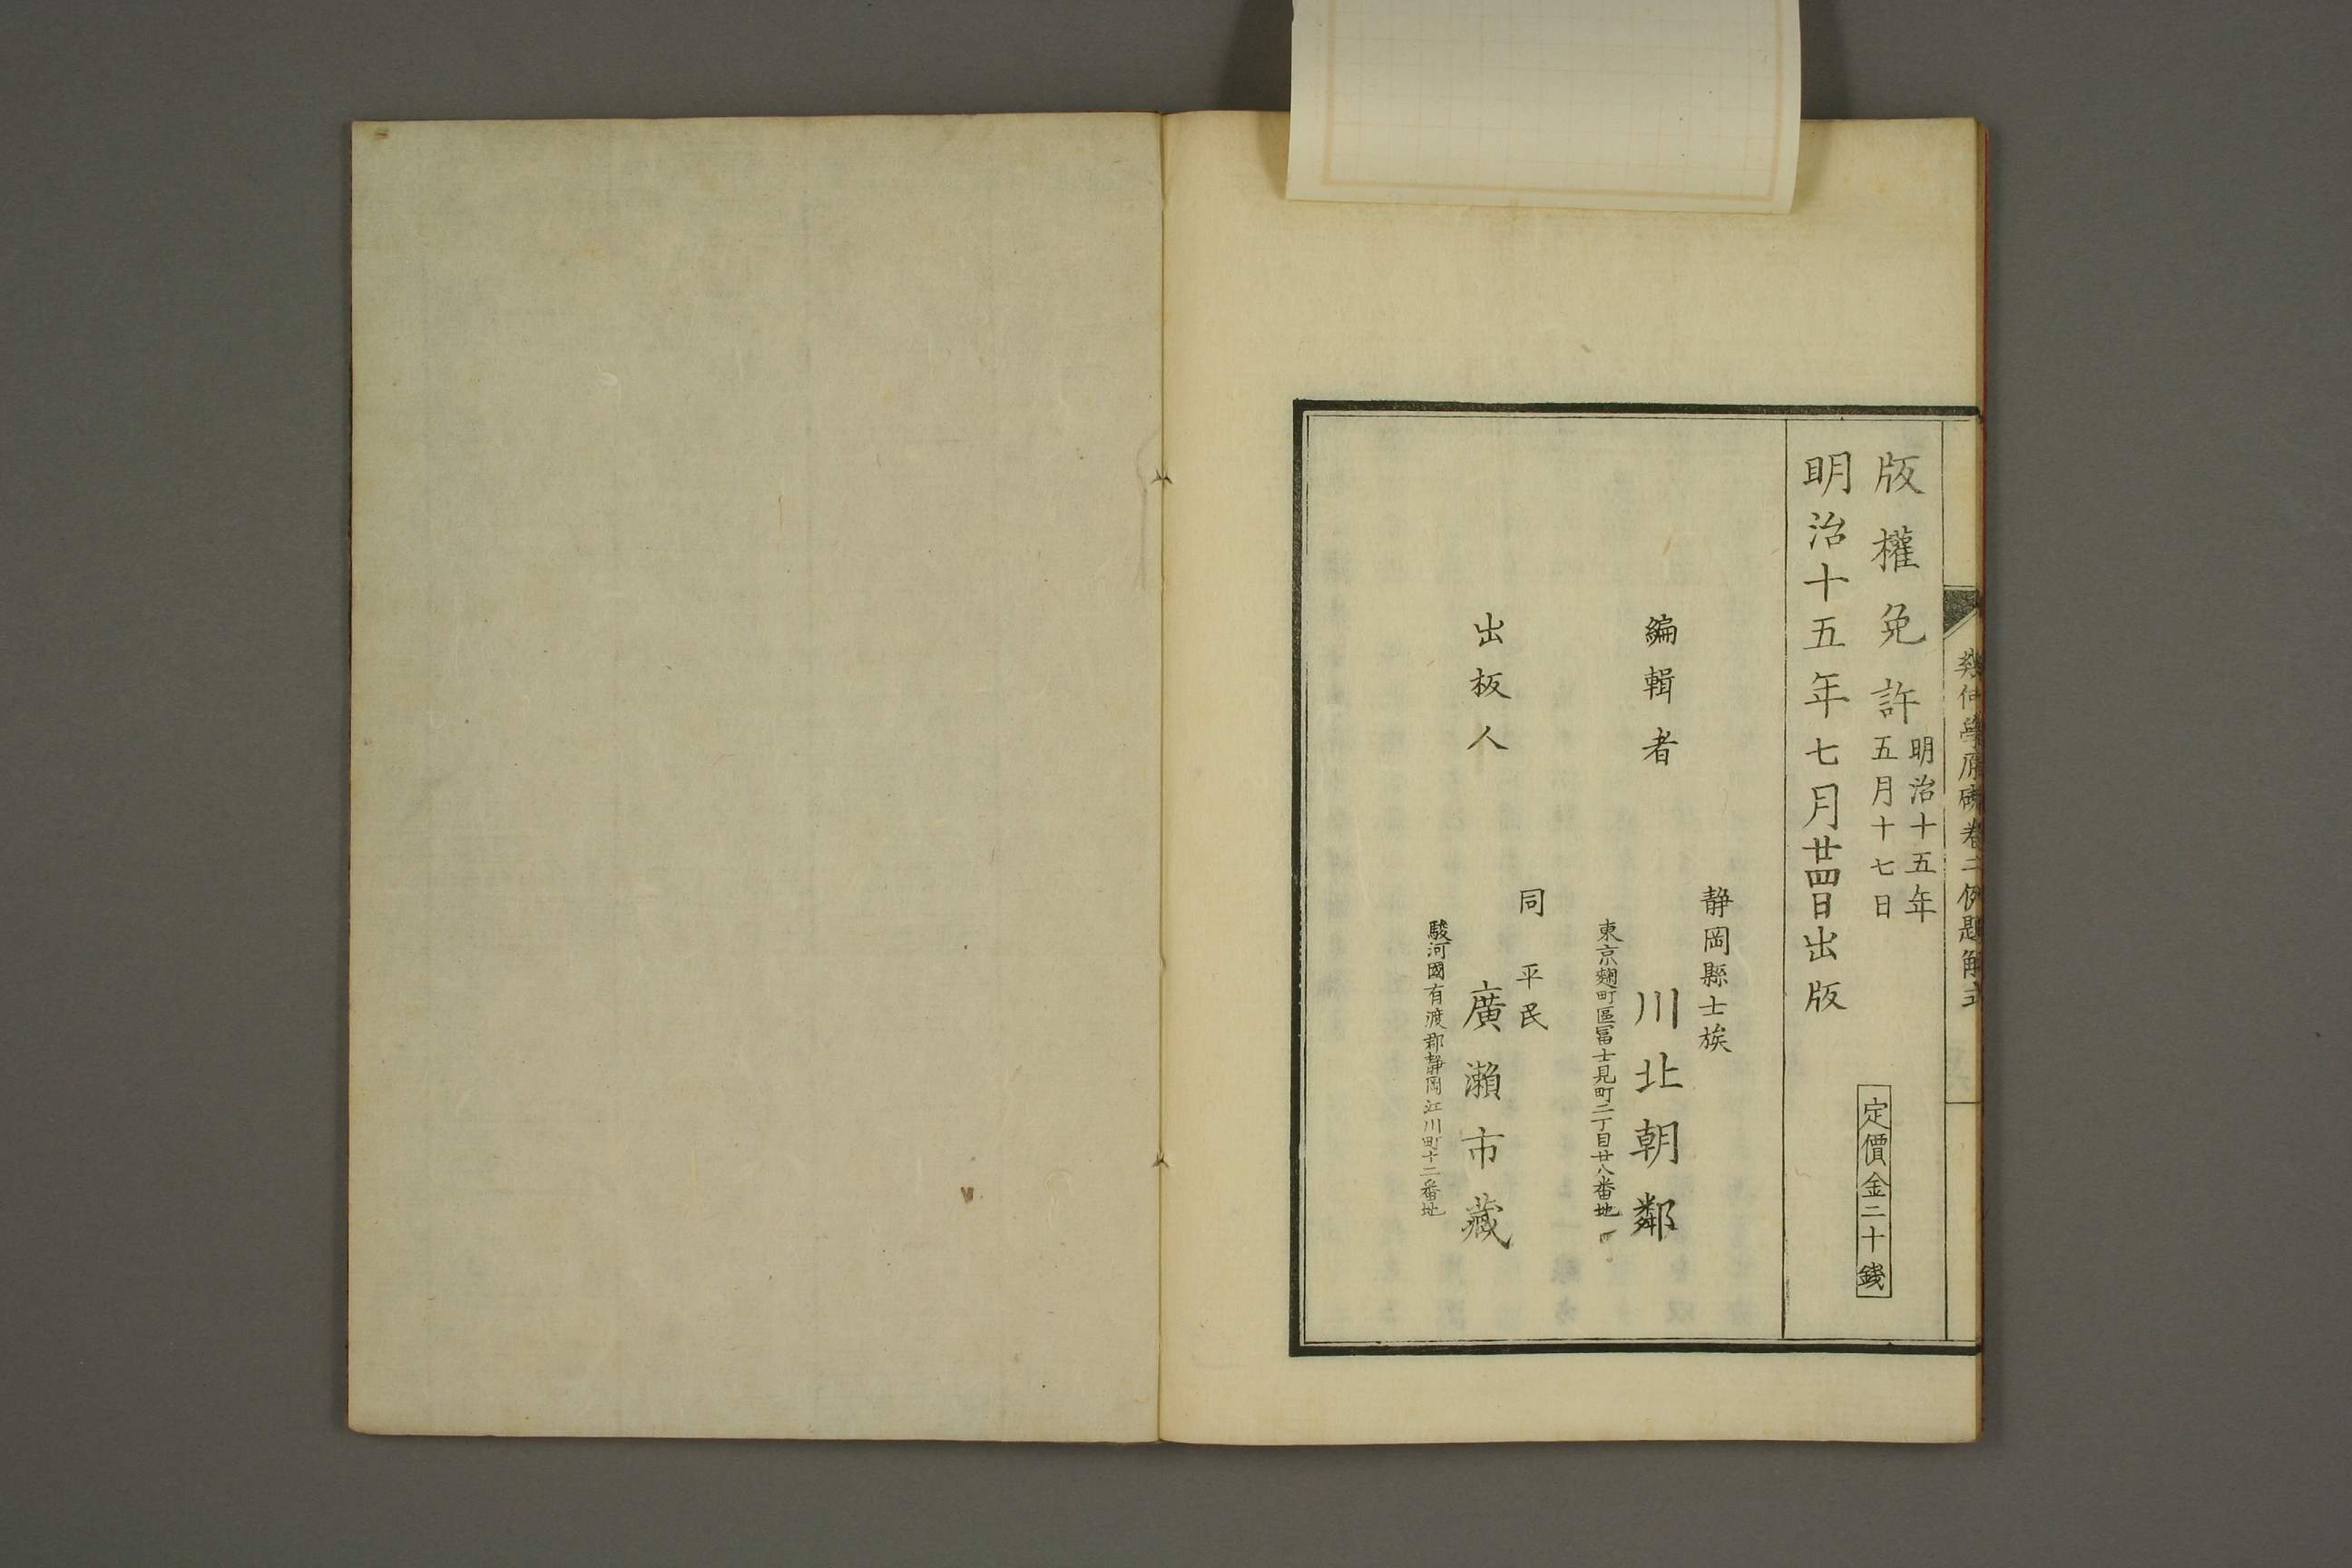 幾何學原礎卷二例題解式
版權免許 明治十五年
五月十七日
定價金二十錢
明治十五年七月廿四日出版
静岡縣士族
編輯者 川北朝鄰
東京麹町區冨士見町二丁目廿八番地
同 平民
出板人 廣瀨市藏
駿河國有渡郡静岡江川町十二番地